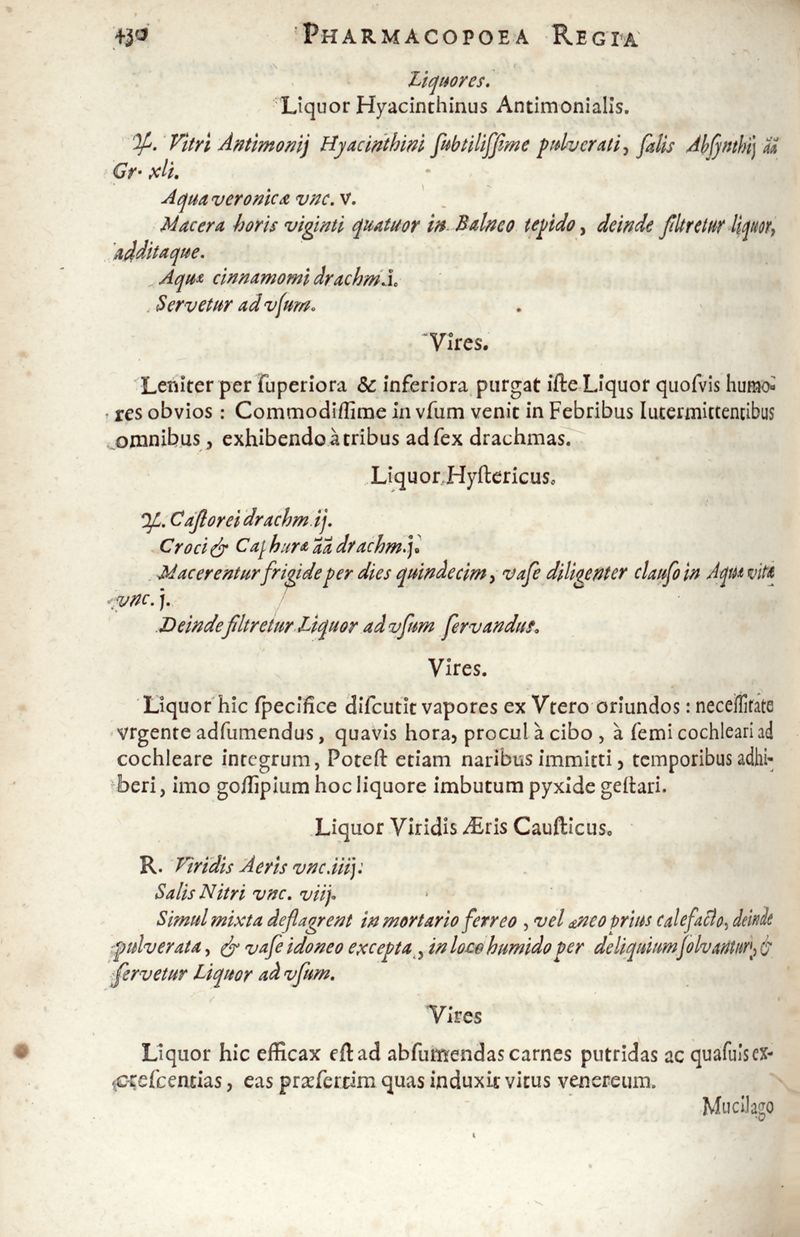 430 PHARMACOPOEA REGIA
Liquores.
Liquor Hyacinthinus Antimonialis.
℞. Vitri Antimonij Hyacinthini ſubtiliſſime pulverati, ſalis Abſynthij ãã
Gr. xli.
Aqua veronicæ vnc. v.
Macera horis viginti quatuor in Balneo tepido, deinde filtretur liquor,
additaque.
Aquæ cinnamomi drachm.i.
Servetur ad vſum.
Vires.
Leniter per ſuperiora & inferiora purgat iſte Liquor quoſvis humo-
res obvios : Commodiſſime in vſum venit in Febribus Iutermittentibus
omnibus, exhibendo à tribus ad ſex drachmas.
Liquor Hyſtericus.
℞. Caſtorei drachm ij.
Croci & Caphuræ ãã drachm.j.
Macerentur frigide per dies quindecim, vaſe diligenter clauſo in Aqua vitæ
vnc. j.
Deinde filtretur Liquor ad vſum ſervandus.
Vires.
Liquor hic ſpecifice diſcutit vapores ex Vtero oriundos : neceſſitate
vrgente adſumendus, quavis hora, procul à cibo , à ſemi cochleari ad
cochleare integrum, Poteſt etiam naribus immitti, temporibus adhi-
beri, imo goſſipium hoc liquore imbutum pyxide geſtari.
Liquor Viridis Æris Cauſticus.
R. Viridis Aeris vnc.iiij.
Salis Nitri vnc. viij.
Simul mixta deflagrent in mortario ferreo , vel æneo prius calefacto, deinde
pulverata, & vaſe idoneo excepta, in loco humido per deliquium ſolvantur, &
ſervetur Liquor ad vſum.
Vires
Liquor hic efficax eſt ad abſumendas carnes putridas ac quaſuis ex-
creſcentias, eas præſertim quas induxit virus venereum.
Mucilago